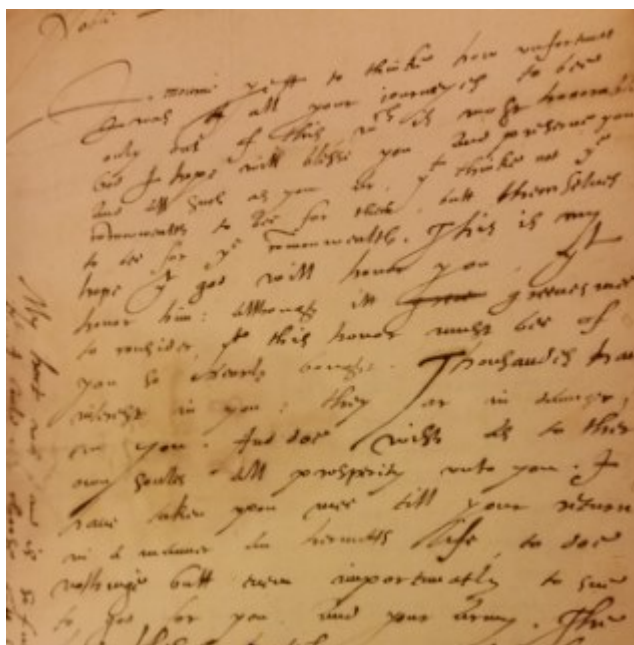 Noble
mourne yett to thinke how unfortunat
I was all your iourneyes to bee
only out of this wch is most honorable
God I hope will blesse you And preserve you
And all such as you ar, yt thinke not ye
commonwealth to bee for them, butt themselves
to bee for ye commonwealth. This is my
hope yt god will honor you, yt
honor him: Although itt greeves mee
to consider, yt this honor must bee of
you so dearly bought. Thousands hav
interest in you: they ar in danger,
on you. And doe wish as to their
own soules all prosperity unto you. I
have taken upon mee till your return
in a manner an hermitts life, to doe
nothinge butt even importunatly to sue
to god for you and your Army. The
My hart